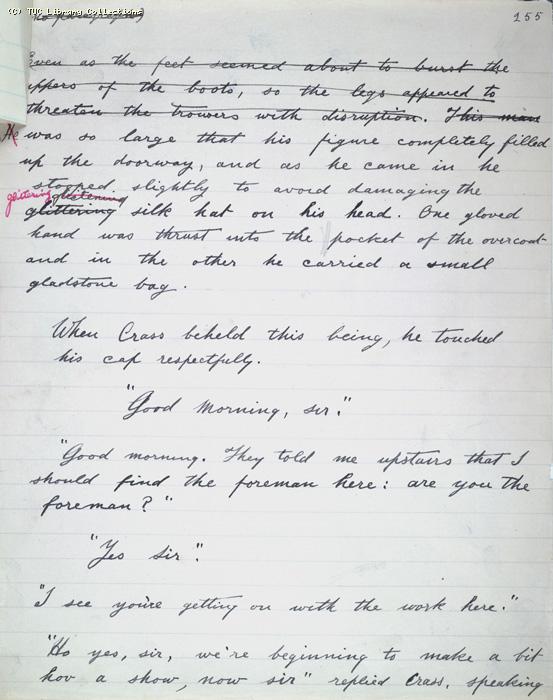 (c) TUC Library Collections
155
Even as the feet seemed about to burst the
uppers of the boots, so the legs appeared to
threaten the trowers with disruption. This man
He was so large that his figure completely filled
up the doorway, and as he came in he
stooped slightly to avoid damaging the
glittering glistening
glittering silk hat on his head. One gloved
hand was thrust into the pocket of the overcoat
and in the other he carried a small
gladstone bag.
When Crass beheld this being, he touched
his cap respectfully.
"Good morning, sir."
"Good morning. They told me upstairs that I
should find the foreman here: are you the
foreman?"
"Yes sir."
"I see you're getting on with the work here."
"Ho yes, sir, we're beginning to make a bit
hov a show, now sir" replied Crass, speaking